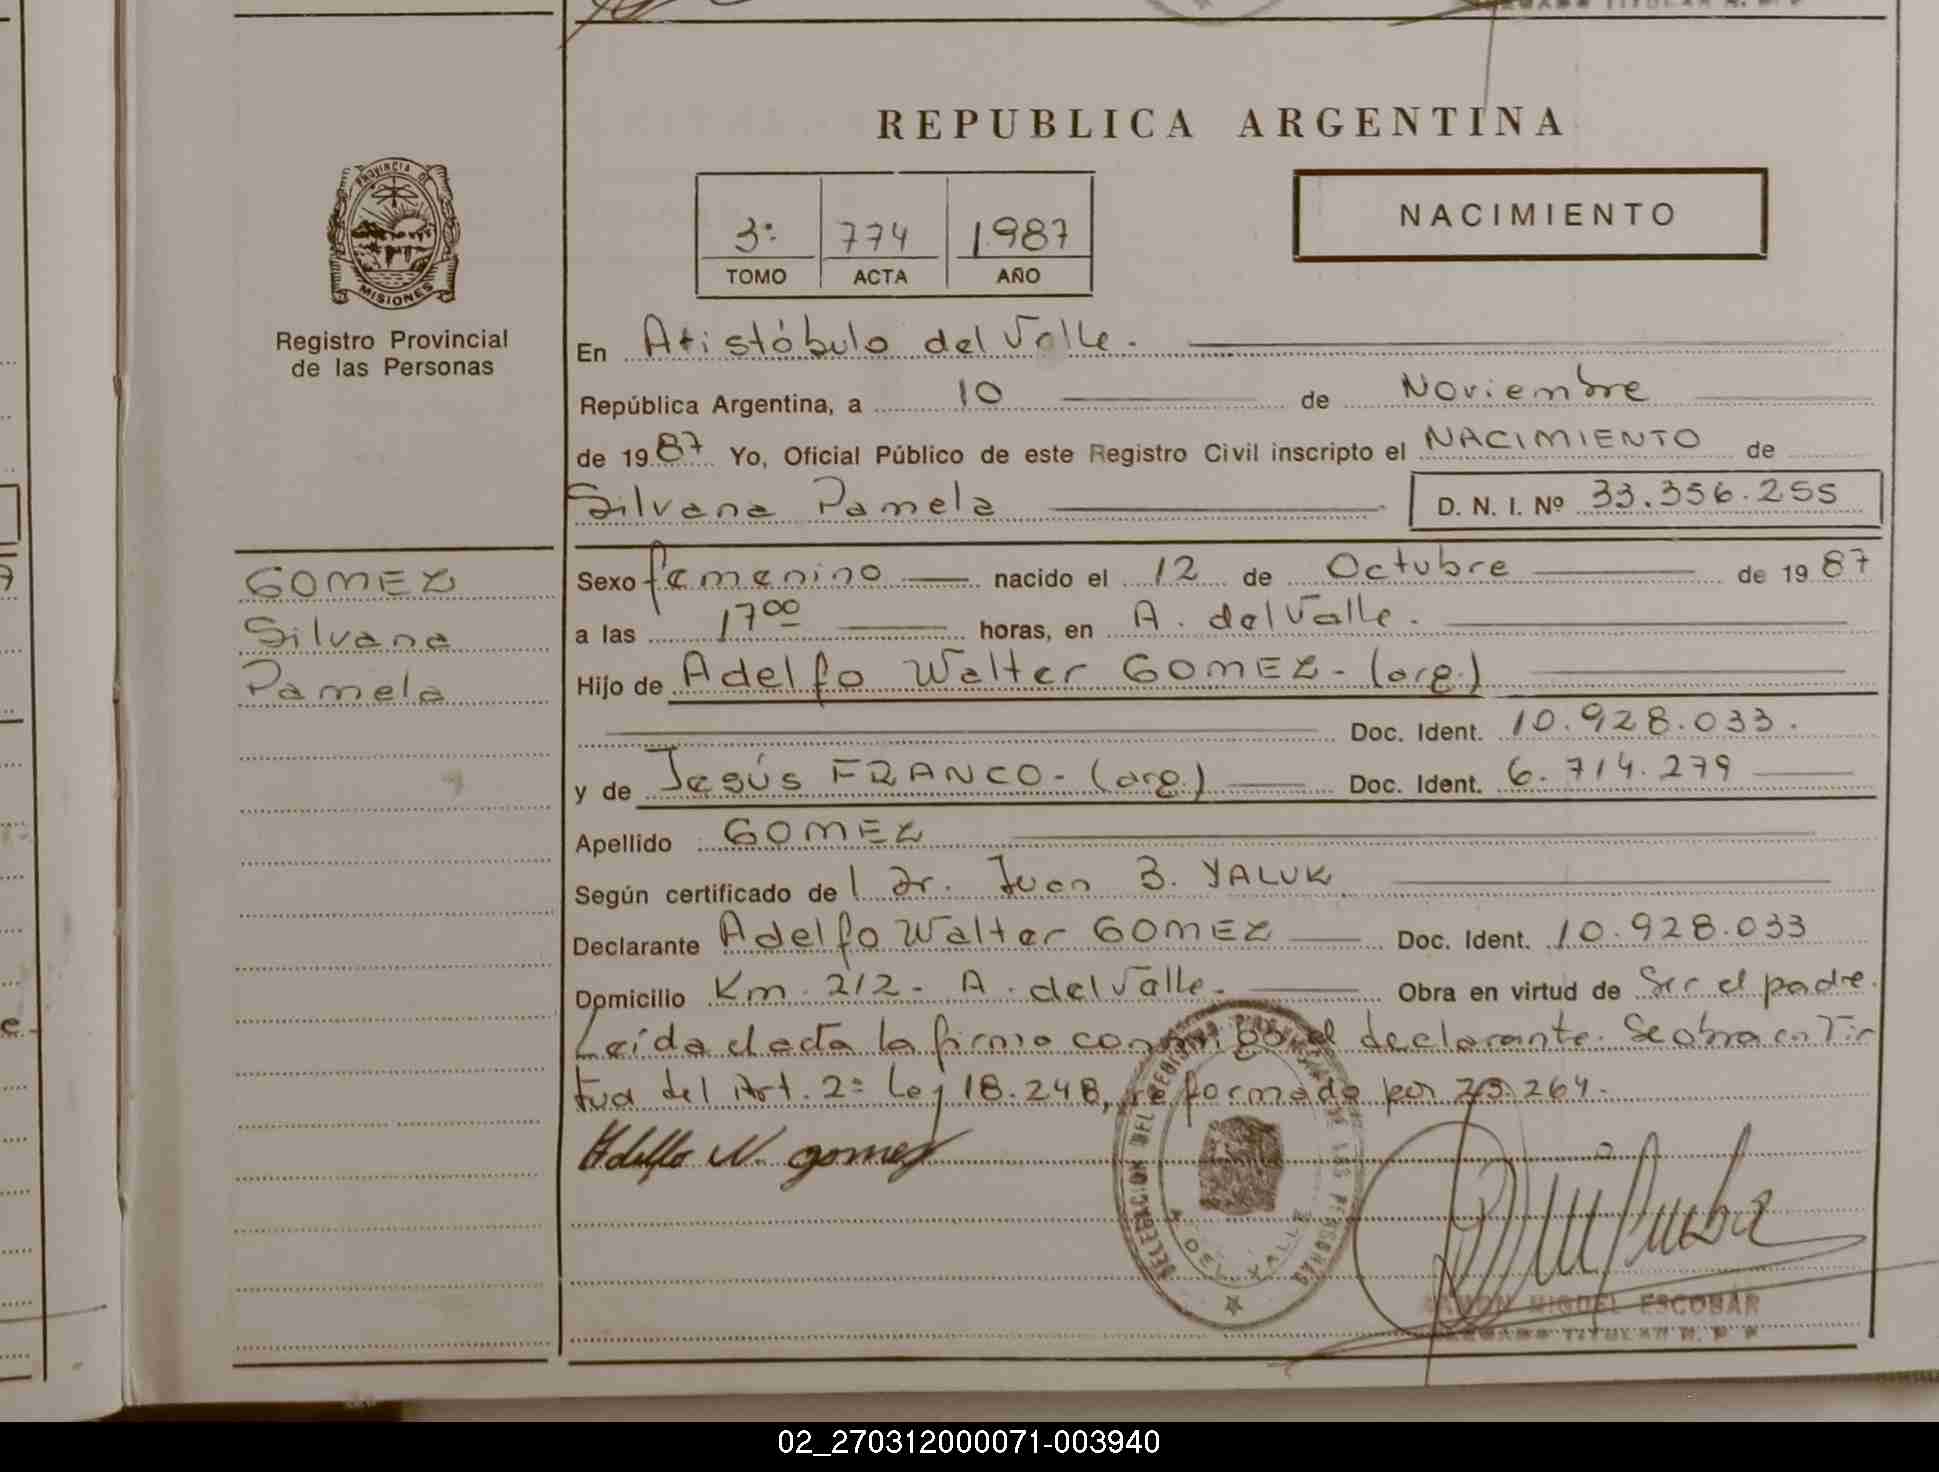 REPUBLICA ARGENTINA
PROVINCIA DE
MISIONES
Registro Provincial
de las Personas
3º 774 1987
TOMO ACTA AÑO
NACIMIENTO
En Aristóbulo del Valle.
República Argentina, a 10 de Noviembre
de 1987 Yo, Oficial Público de este Registro Civil inscripto el NACIMIENTO de
Silvana Pamela D. N. I. Nº 33.356.255
GOMEZ
Silvana
Pamela
Sexo femenino nacido el 12 de Octubre de 1987
a las 17 00 horas, en A. del Valle.
Hijo de Adelfo Walter GOMEZ - (arg.)
Doc. Ident. 10.928.033.
y de Jesús FRANCO - (arg.) Doc. Ident. 6.714.279
Apellido GOMEZ
Según certificado de l Dr. Juan B. YALUK
Declarante Adelfo Walter GOMEZ Doc. Ident. 10.928.033
Domicilio Km. 212 - A. del Valle. Obra en virtud de Ser el padre.
Leída el acta la firma conmigo el declarante. Se obra en Vir
tud del Art. 2º Ley 18.248, reformada por 23.264.
Adelfo W. gomez
DELEGACION DEL REGISTRO PROVINCIAL DE LAS PERSONAS
A. DEL VALLE
RAMON MIGUEL ESCOBAR
TITULAR R. P. P.
02_270312000071-003940